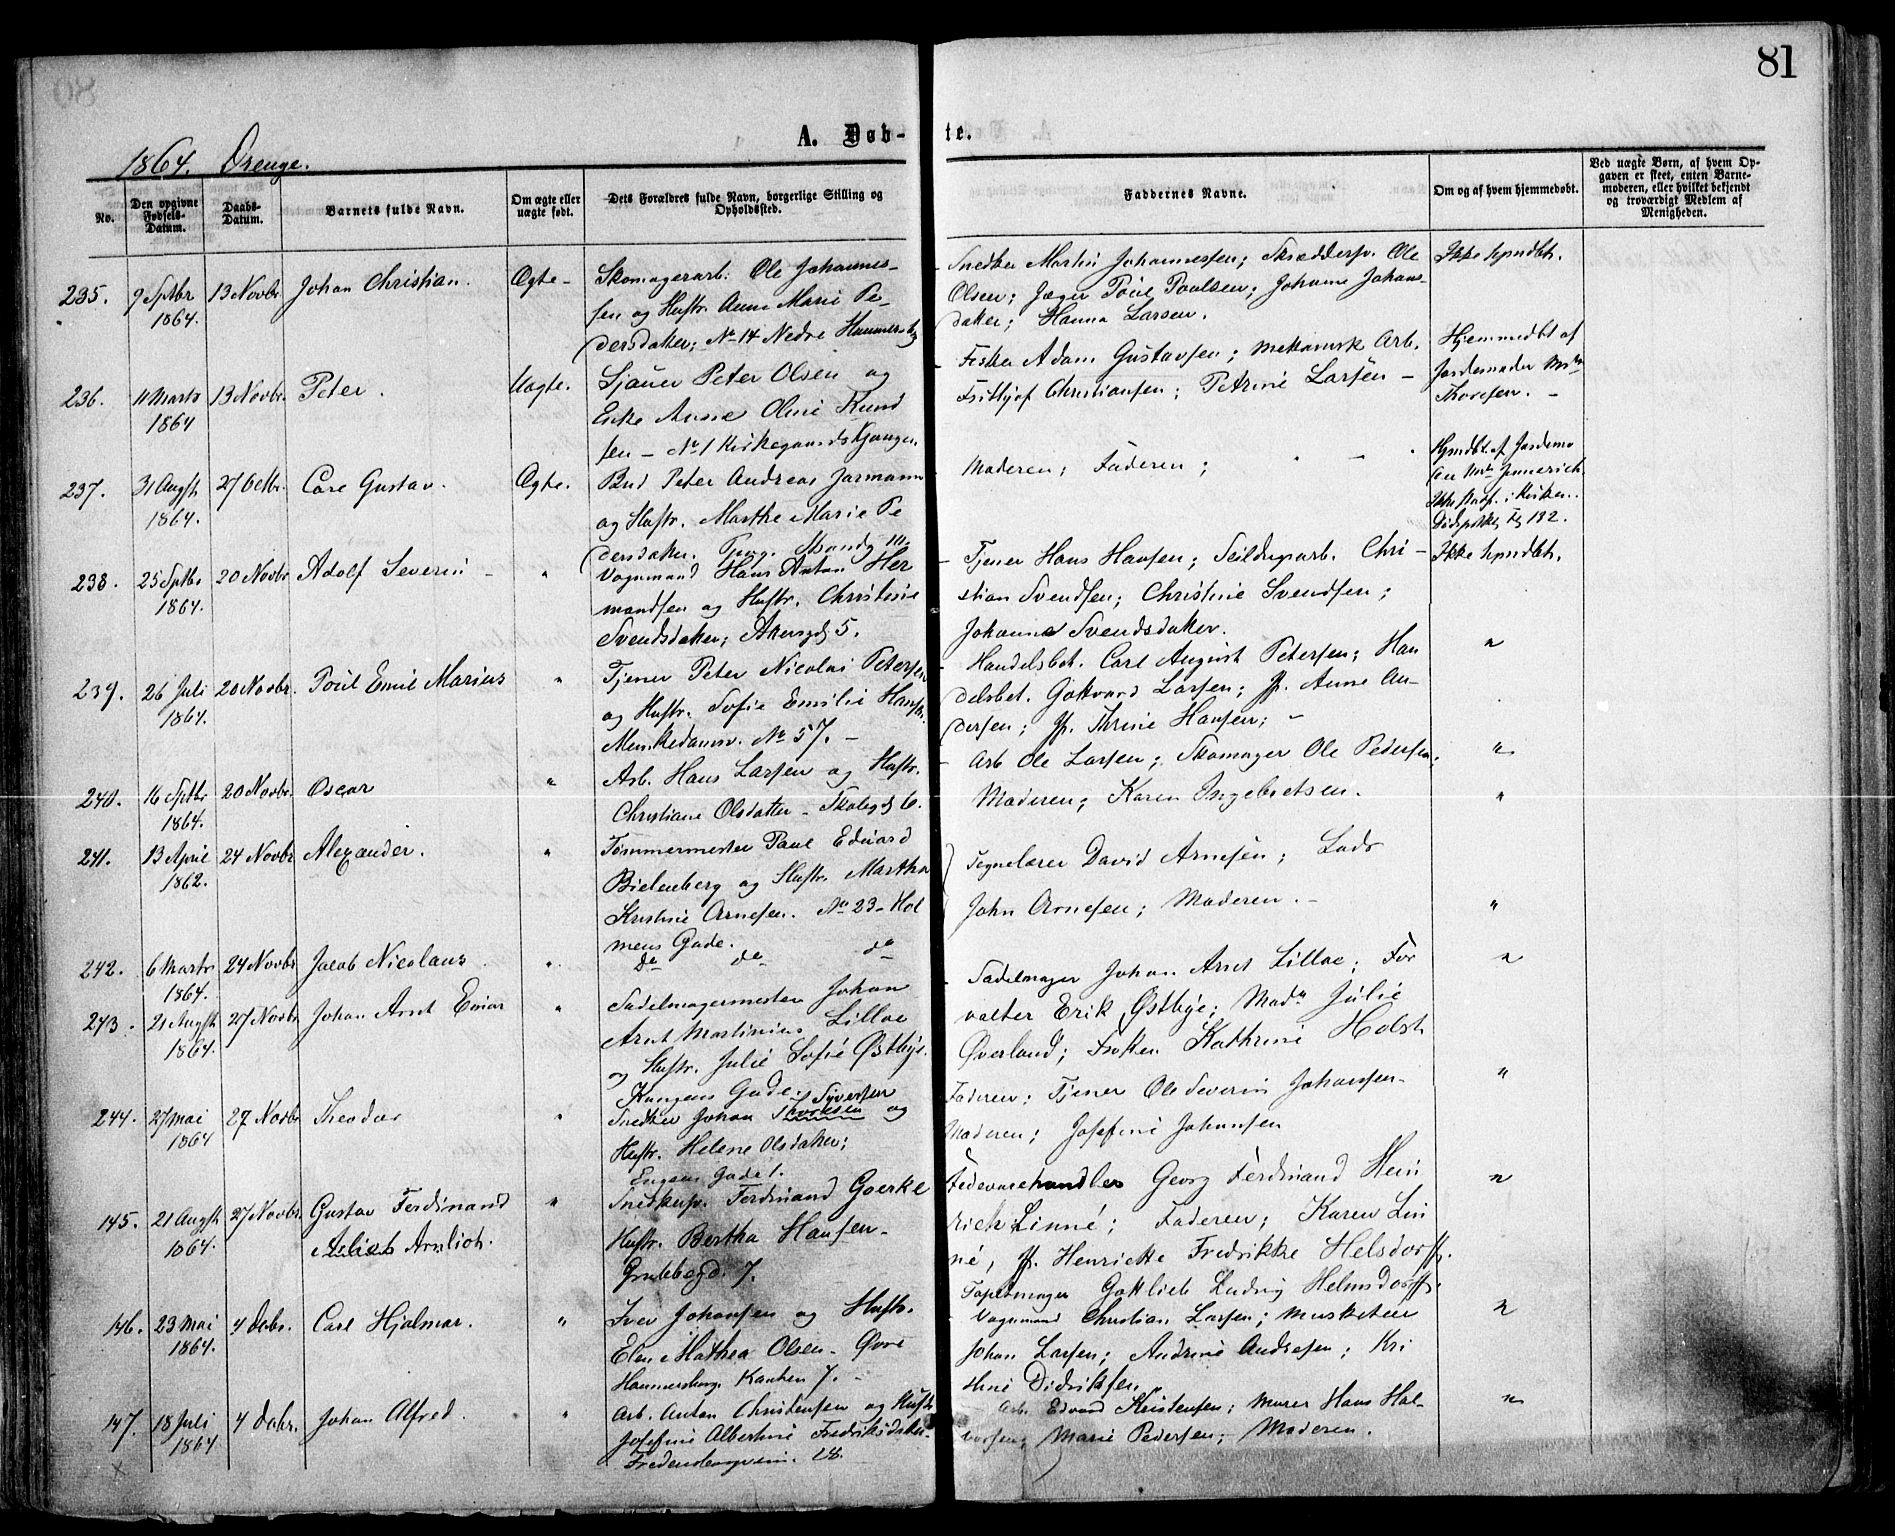 81
A. Døb-te.
1864. Drenge.
No.
Den opgivne Fødsels-Datum.
Daabs-Datum.
Barnets fulde Navn.
Om ægte eller uægte født.
Dets Forældres fulde Navn, borgerlige Stilling og Opholdssted.
Faddernes Navne.
Om og af hvem hjemmedøbt.
Ved uægte Børn, af hvem Op-
gaven er skeet, enten Barne-
moderen, eller hvilket bekjendt
og troværdigt Medlem af
Menigheden.
235. 9 Septbr 13 Novbr Johan Christian. Ægte-
1864.
Skomagerarb. Ole Johannes-
sen og Hustr. Anne Marie Pe-
dersdatter; No 14 Nedre Hammersbg
Snedker Martin Johannessen; Skræddersv. Ole
Olsen; Jæger Poul Poulsen; Johanne Johans-
datter; Hanna Larsen.
Ikke hjmdbt.
236. 11 Marts 13 Novbr. Peter. Uægte.
1864
Sjauer Peter Olsen og
Enke Anne Oline Knud
sen - No 1 Kirkegaards
Fisker Adam Gustavsen; mekanisk Arb.
Frithjof Christiansen; Petrine Larsen -
Hjemmedbt af
Jordemoder
Thoresen. -
237. 31 Augst 27 Octbr. Carl Gustav. Ægte.
1864.
Bud Peter Andreas Jarmann
og Hustr. Marthe Marie Pe
dersdatter.
Moderen; Faderen;
Hjmdbt. af Jordemo
i Kirken.
132.
238. 25 Septbr 20 Novbr Adolf Severin - "
1864.
Vognmand Hans Anton Her
mandsen og Hustr. Christine
Svendsdatter; Akersgd 5.
Tjener Hans Hansen; Seildugsarb. Chri-
stian Svendsen; Christine Svendsen;
Johanne Svendsdatter.
Ikke hjmdbt.
239. 26 Juli 20 Novbr. Poul Emil Marius "
1864.
Tjener Peter Nicolai Petersen
og Hustr. Sofie Emilie Hansen.
Munkedamsv. No 57. -
Handelsbet. Carl August Petersen; Han
delsbet. Gotvard Larsen; Jf. Anne An-
dersen; Jf. Thrine Hansen; -
"
240. 16 Septbr 20 Novbr. Oscar "
1864.
Arb. Hans Larsen og Hustr.
Christiane Olsdatter - Skolegd 6.
Arb Ole Larsen; Skomager Ole Pedersen;
Moderen; Karen Ingebretsen.
"
241. 13 April 24 Novbr Alexander. "
1862.
Tømmermester Paul Eduard
Bielenberg og Hustr. Martha
Kristine Arnesen. No 23 - Hol
mens Gade.
Tegnelærer David Arnesen; Lods
John Arnesen; Moderen. -
"
242. 6 Marts 24 Novbr Jacob Nicolaus. "
1864.
do do do
243. 21 Augst 27 Novbr. Johan Arnt Einar "
1864.
Sadelmagermester Johan
Arnt Martinius Lilloe
og Hustr. Julie Sofie Østbye.
Kongens Gade.
Sadelmager Johan Arnt Lilloe; For
valter Erik Østbye; Madm Julie
Øverland; Frøken Kathrine Holst
"
244. 27 Mai 27 Novbr Theodor "
1864
Syversen
Snedker Johan Thorkesen og
Hustr. Helene Olsdatter;
Engens Gade 1.
Faderen; Tjener Ole Severin Johansen-
Moderen; Josefine Johansen
"
145. 21 Augst 27 Novbr. Gustav Ferdinand "
1864. Arnliot.
Snedkersv. Ferdinand Goerke
Hustr. Bertha Hansen-
Grubbegd. 7.
Fedevarehandler Georg Ferdinand Hein
rich Linné; Faderen; Karen Lin
né, Jf. Henriette Fredrikke Helsdorff.
Tapetmager Gottlieb Ludvig Helmsdorff.
"
146. 23 Mai 4 Debr. Carl Hjalmar. "
1864.
Iver Johansen og Hustr.
Elen Mathea Olsen- Øvre
Hammersborg. Kanten 7. -
Vognmand Christian Larsen; Musketeer
Johan Larsen; Andrine Andresen; Kri
stine Didriksen.
"
147. 18 Juli 4 Debr. Johan Alfred. "
1864
x
Arb. Anton Christensen og Hustr
Josefine Albertine Fredriksdatter
28.
Arb. Edvard Kristensen; Murer Hans Hal-
vorsen; Marie Pedersen; Moderen.
"